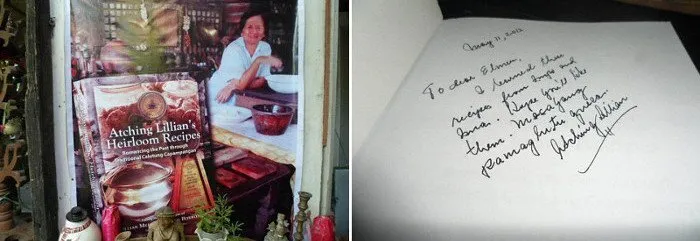 Atching Lillian's
Heirloom Recipes
Romancing the Past through
Traditional Calutung Capampangan
May 11, 2012
To dear Elmer,
I learned these
recipes from Impo and
Ima. Hope you'll like
them. Masayang
pamaglutu
Atching Lillian